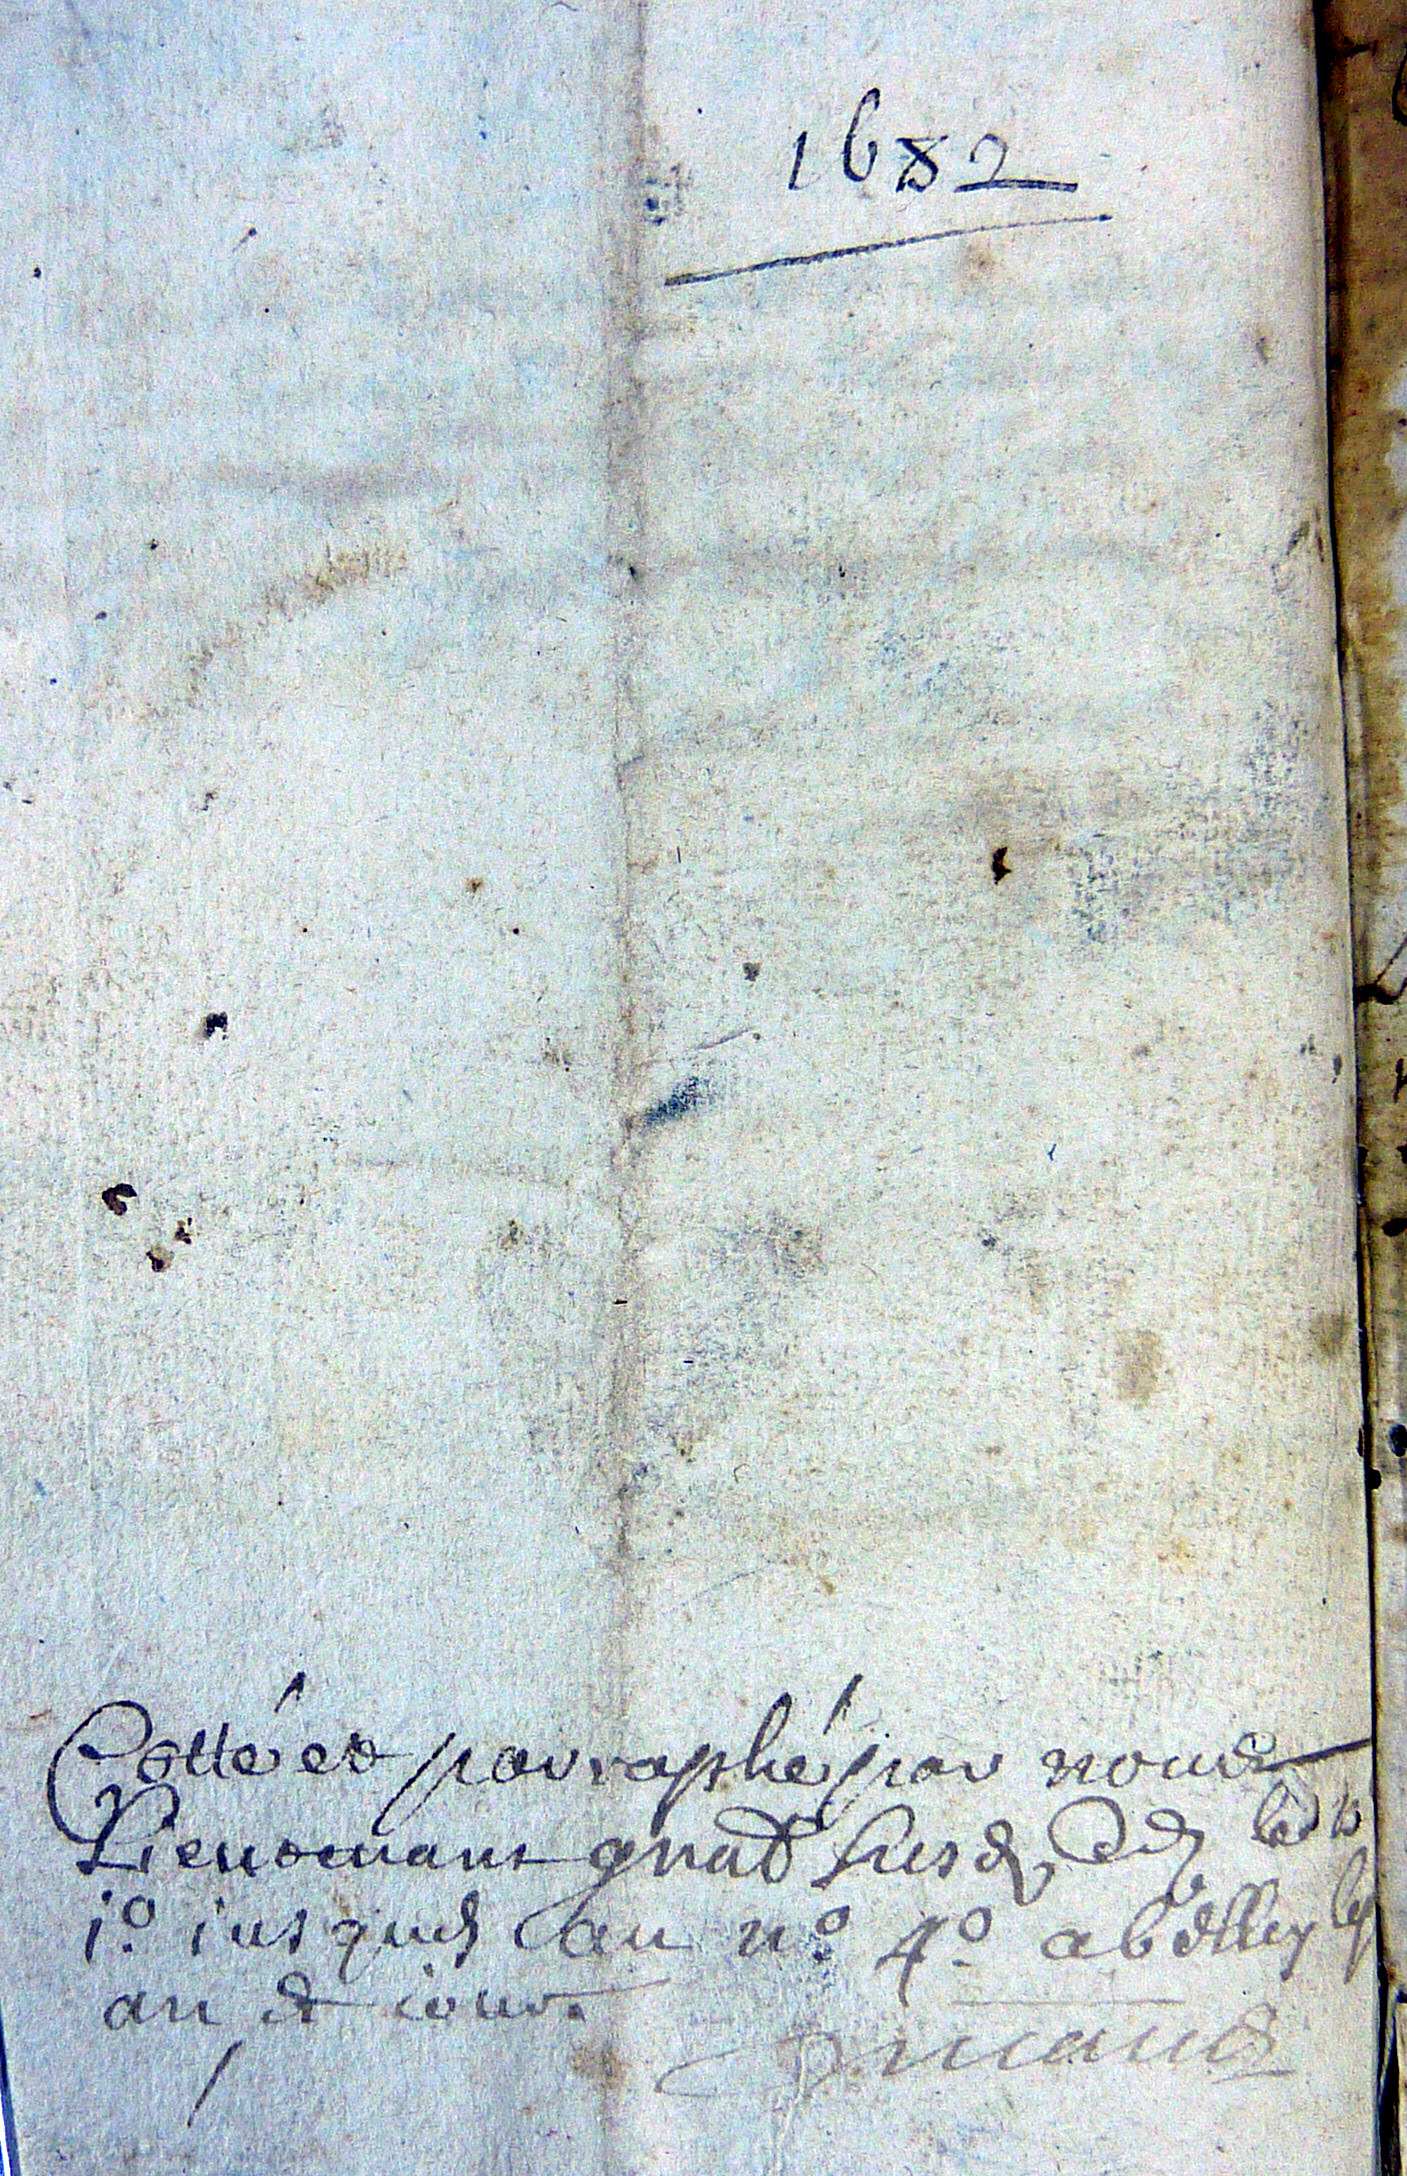 1682
Cotté et parraphé par nous
Lieutenant gnal susd
1º iusques au nº 4º
an & iour